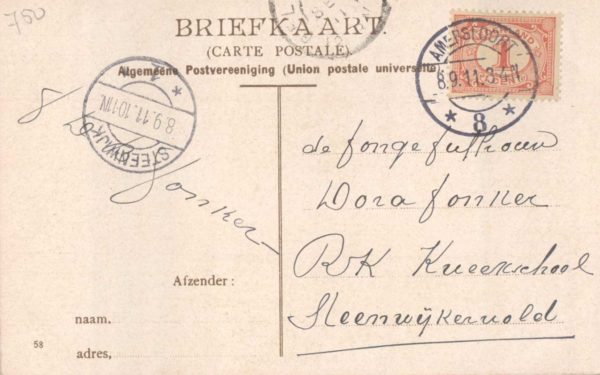 750
BRIEFKAART.
(CARTE POSTALE)
Algemeene Postvereeniging (Union postale universelle)
AMERSFOORT
8.9.11. 3-4 N.
8
1
STEENWIJK
8.9.11. 10-11 N.
Jonker
de Jongejufrouw
Dora Jonker
RK Kweekschool
Steenwijkerwold
Afzender:
naam.
adres,
58